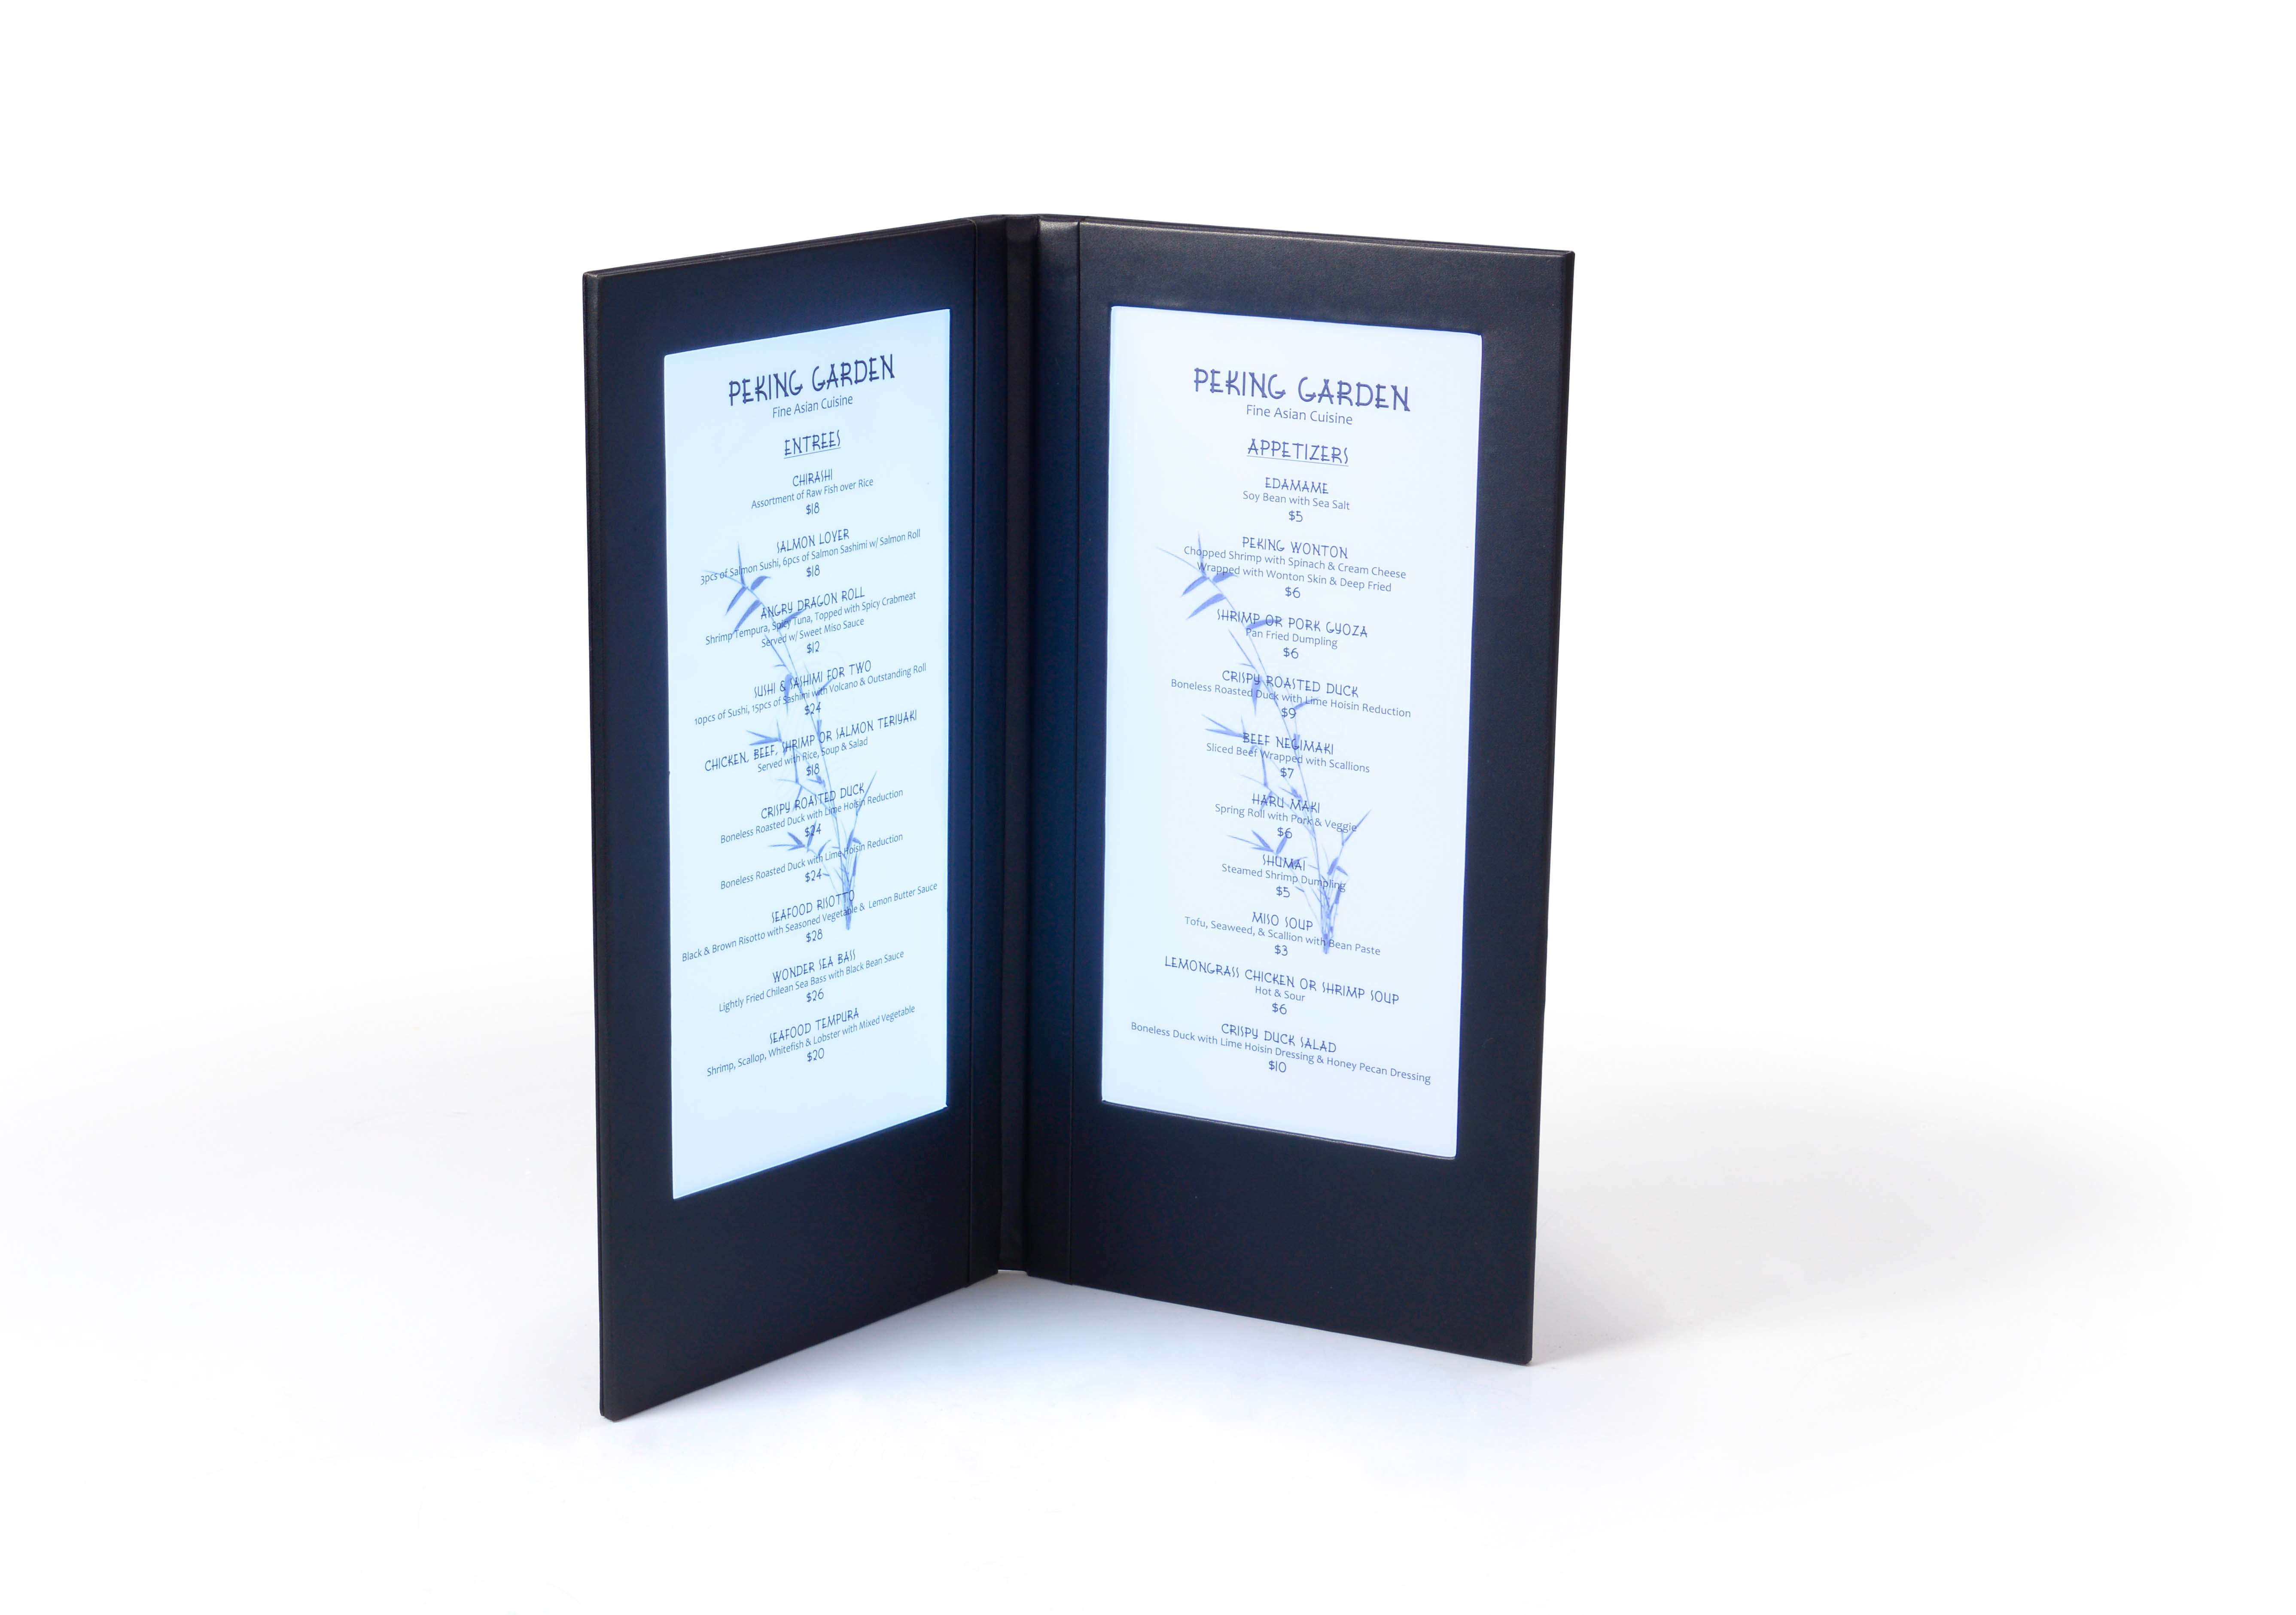 PEKING GARDEN
Fine Asian Cuisine
ENTREES
CHIRASHI
Assortment of Raw Fish over Rice
$18
SALMON LOVER
3pcs of Salmon Sushi, 6pcs of Salmon Sashimi w/ Salmon Roll
$18
ANGRY DRAGON ROLL
Shrimp Tempura, Spicy Tuna, Topped with Spicy Crabmeat
Served w/ Sweet Miso Sauce
$12
SUSHI & SASHIMI FOR TWO
10pcs of Sushi, 15pcs of Sashimi with Volcano & Outstanding Roll
$24
CHICKEN, BEEF, SHRIMP OR SALMON TERIYAKI
Served with Rice, Soup & Salad
$18
CRISPY ROASTED DUCK
Boneless Roasted Duck with Lime Hoisin Reduction
$24
Boneless Roasted Duck with Lime Hoisin Reduction
$24
SEAFOOD RISOTTO
Black & Brown Risotto with Seasoned Vegetable & Lemon Butter Sauce
$28
WONDER SEA BASS
Lightly Fried Chilean Sea Bass with Black Bean Sauce
$26
SEAFOOD TEMPURA
Shrimp, Scallop, Whitefish & Lobster with Mixed Vegetable
$20
PEKING GARDEN
Fine Asian Cuisine
APPETIZERS
EDAMAME
Soy Bean with Sea Salt
$5
PEKING WONTON
Chopped Shrimp with Spinach & Cream Cheese
Wrapped with Wonton Skin & Deep Fried
$6
SHRIMP OR PORK GYOZA
Pan Fried Dumpling
$6
CRISPY ROASTED DUCK
Boneless Roasted Duck with Lime Hoisin Reduction
$9
BEEF NEGIMAKI
Sliced Beef Wrapped with Scallions
$7
HARU MAKI
Spring Roll with Pork & Veggie
$6
SHUMAI
Steamed Shrimp Dumpling
$5
MISO SOUP
Tofu, Seaweed, & Scallion with Bean Paste
$3
LEMONGRASS CHICKEN OR SHRIMP SOUP
Hot & Sour
$6
CRISPY DUCK SALAD
Boneless Duck with Lime Hoisin Dressing & Honey Pecan Dressing
$10